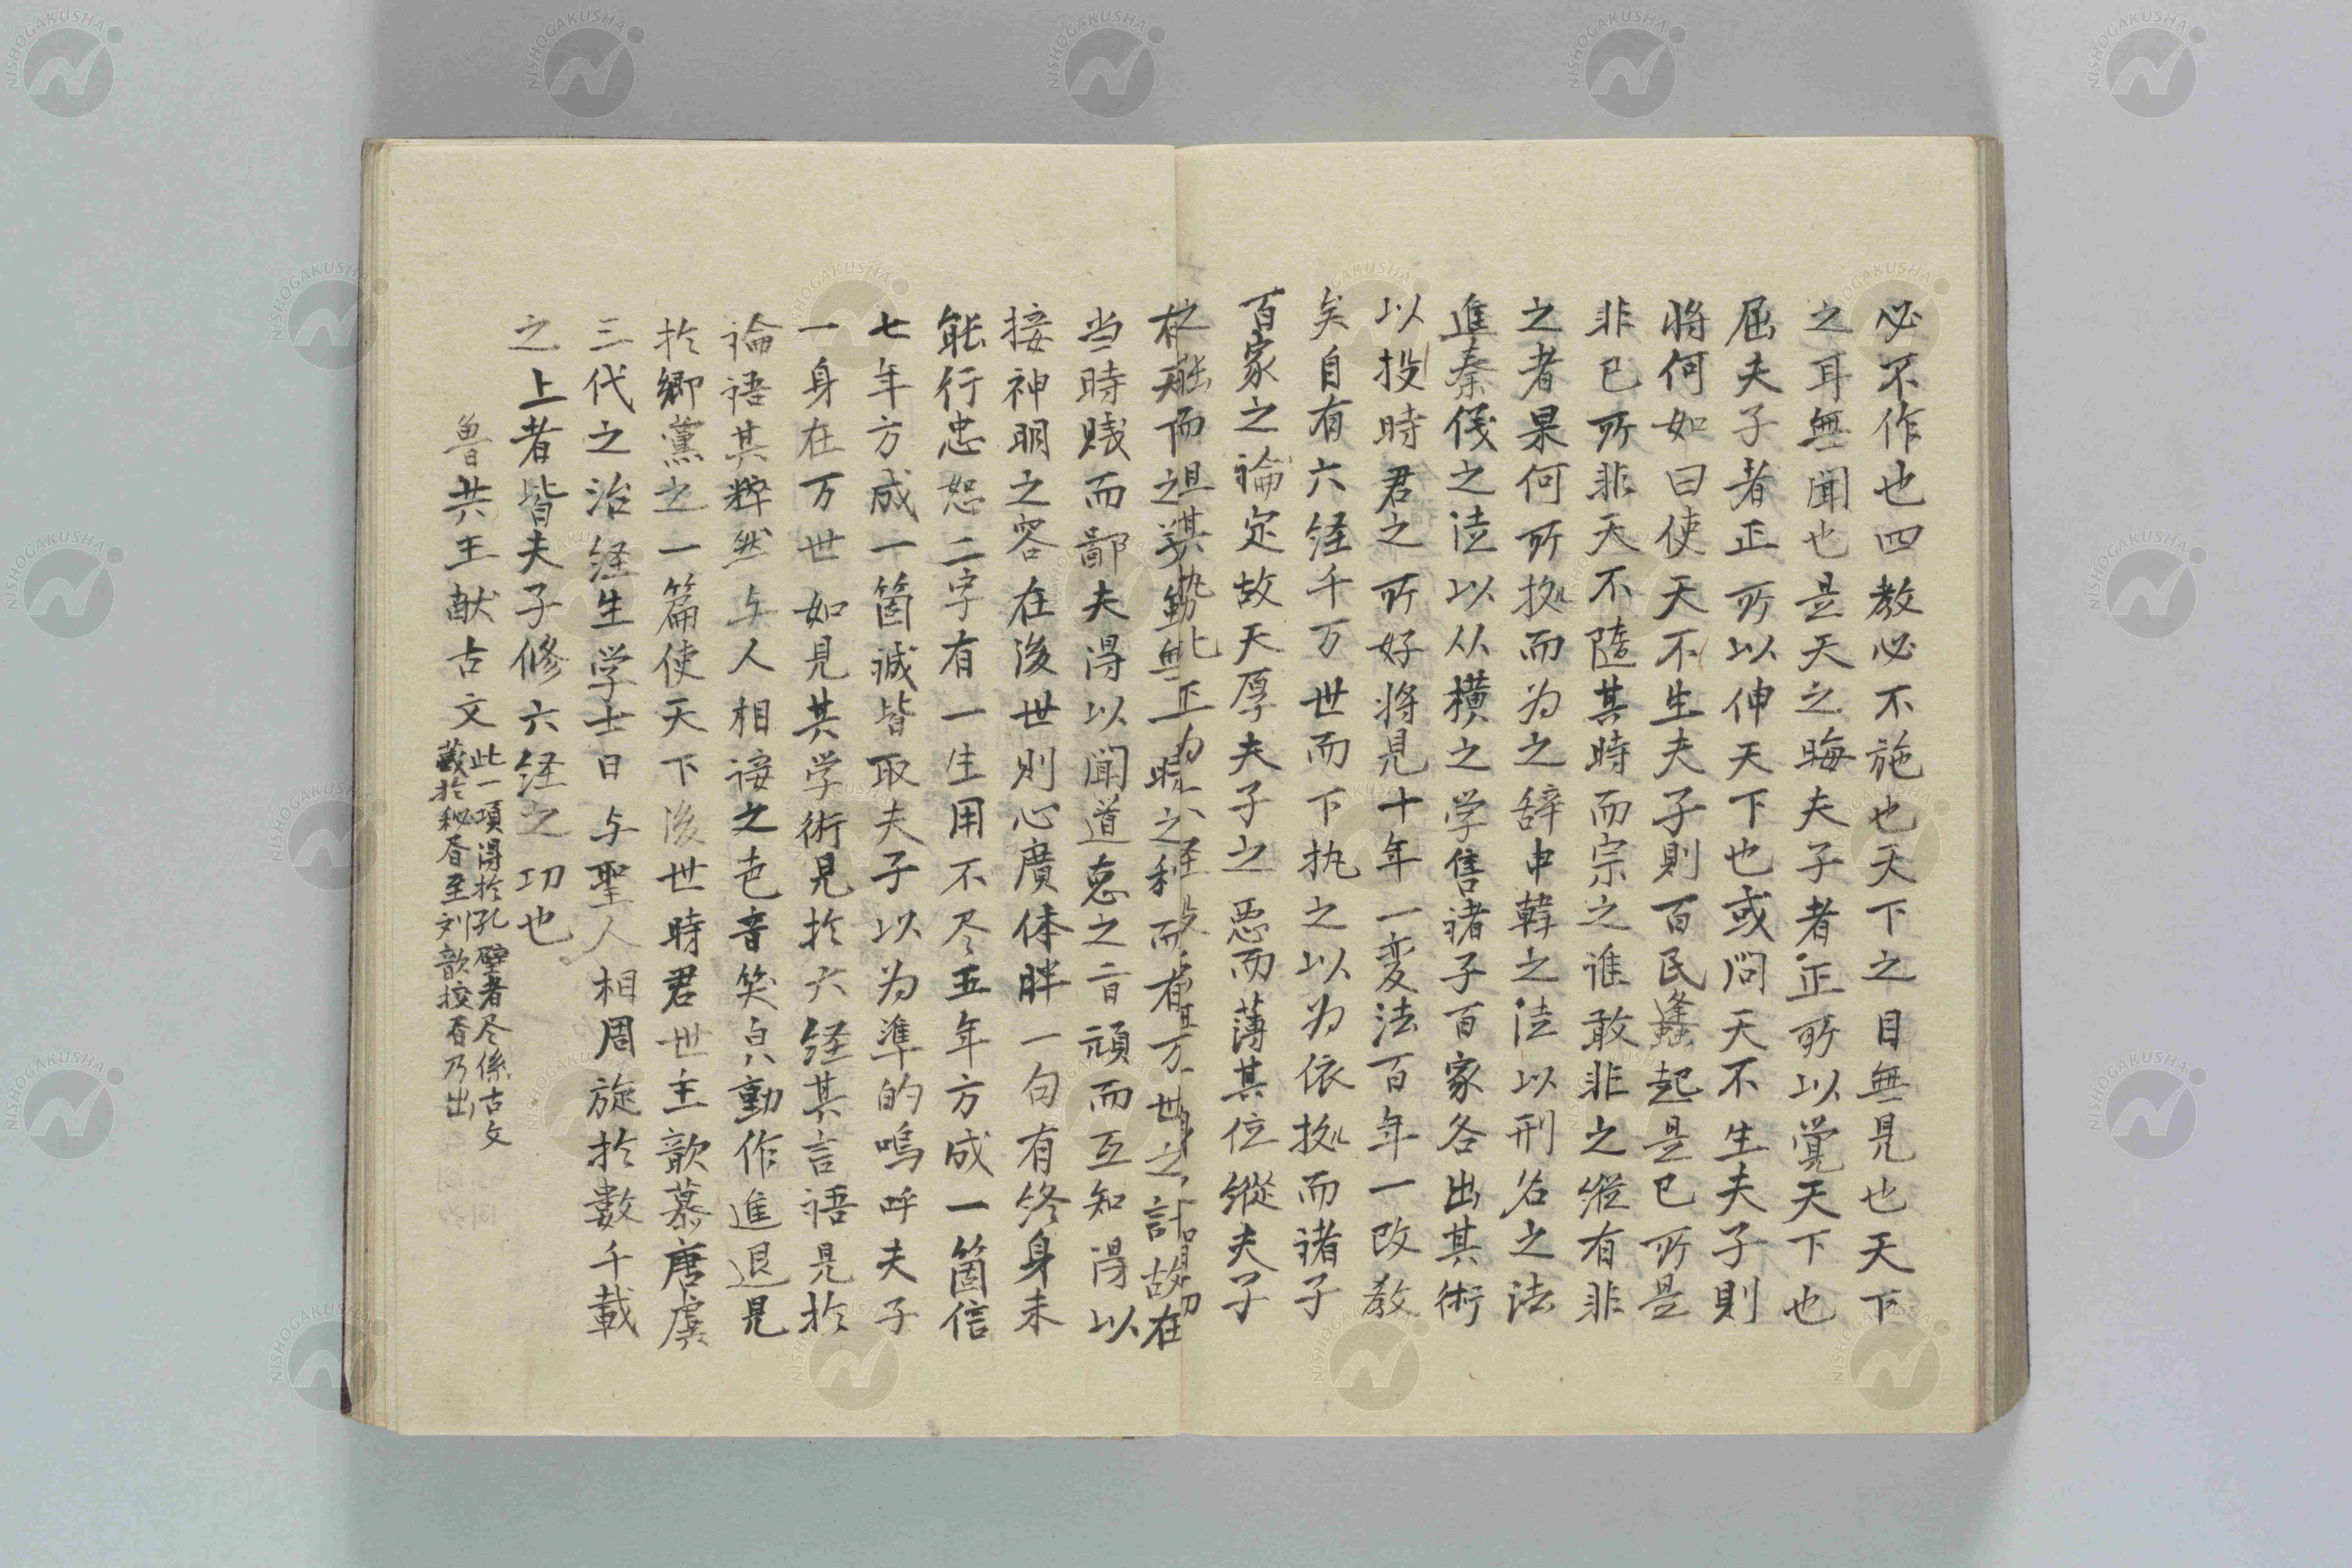 必不作也四教必不施也天下之目無見也天下
之耳無聞也是天之晦夫子者正所以覚天下也
屈夫子者正所以伸天下也或問天不生夫子則
将何如曰使天不生夫子則百民蠭起是已所是
非已所非天不隨其時而宗之誰敢非之縱有非
之者果何所拠而为之辞申韓之法以刑名之法
進秦儀之法以从横之学售諸子百家各出其術
以投時君之所好将見十年一変法百年一改教
矣自有六経千万世而下执之以为依拠而諸子
百家之論定故天厚夫子之悳而薄其位縱夫子
之能而沮其勢此正为六経
時之利而有万世之計故在
当時賎而鄙夫得以聞道悳之音頑而互知得以
接神明之容在後世則心廣体胖一句有终身未
能行忠恕二字有一生用不尽五年方成一箇信
七年方成一箇誠皆取夫子以为準的嗚呼夫子
一身在万世如見其学術見於六経其言語見於
論語其粹然与人相接之色音笑皃動作進退見
於鄉黨之一篇使天下後世時君世主歆慕唐虞
三代之治経生学士日与聖人相周旋於數千載
之上者皆夫子修六経之功也
魯共王献古文
此一項得於孔壁者尽係古文
蔵於秘書至刘歆挍書乃出
NISHOGAKUSHA